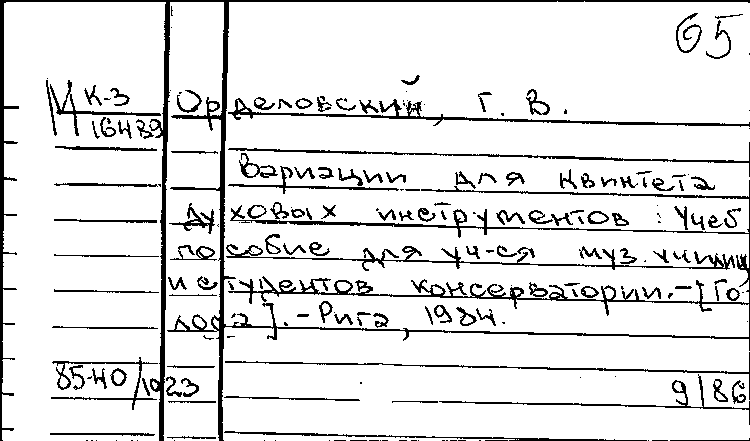 65
М К-3 Орделовский, Г. В.
16439
Вариации для квинтета
духовых инструментов : Учеб
пособие для уч-ся муз. училищ
и студентов консерватории.-[Го
лоса].-Рига, 1984.
85-40/1023 9/86